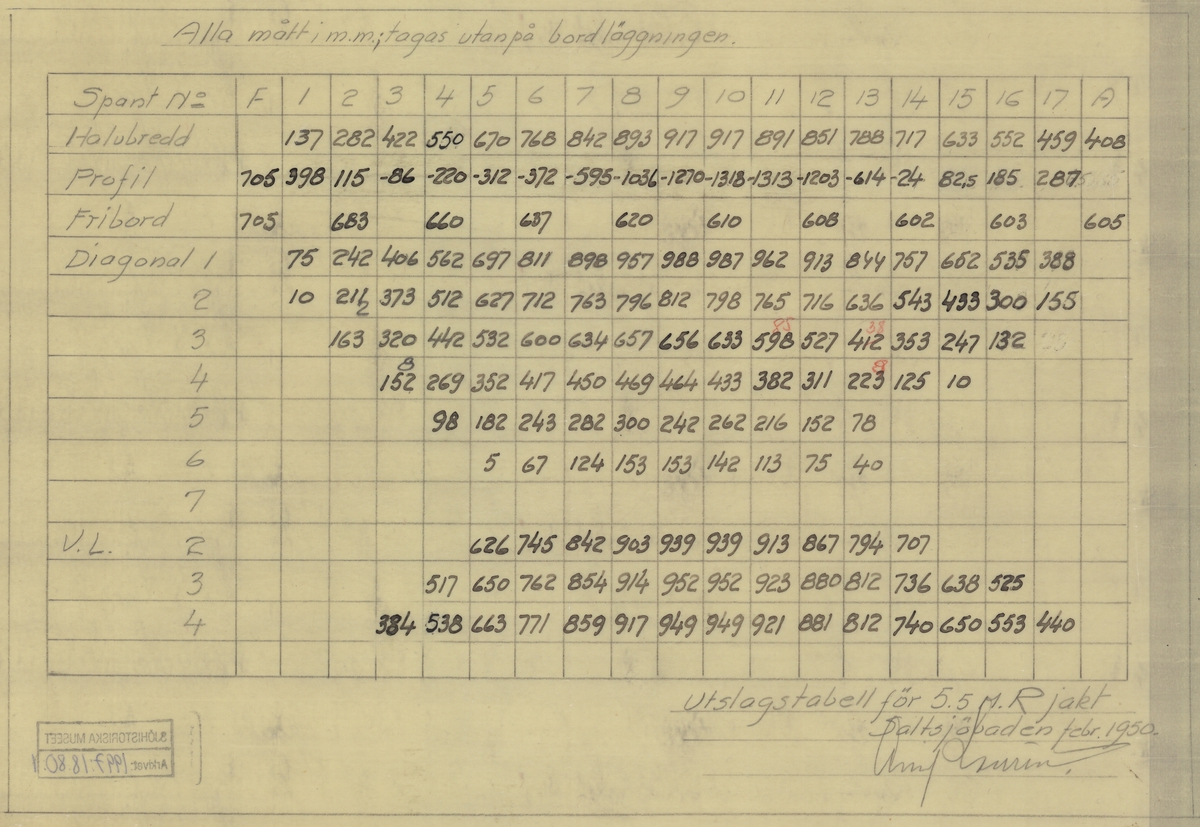 Alla mått i m.m.; tagas utanpå bordläggningen.
Spant No F 1 2 3 4 5 6 7 8 9 10 11 12 13 14 15 16 17 A
Halvbredd 137 282 422 550 670 768 842 893 917 917 891 851 788 717 633 552 459 408
Profil 705 398 115 -86 -220 -312 -372 -595 -1036 -1270 -1318 -1313 -1203 -614 -24 82,5 185 287
Fribord 705 683 660 637 620 610 608 602 603 605
Diagonal 1 75 242 406 562 697 811 898 957 988 987 962 913 844 757 652 535 388
2 10 216 373 512 627 712 763 796 812 798 765 716 636 543 433 300 155
3 163 320 442 532 600 634 657 656 633 598 85 527 412 38 353 247 132
4 152 8 269 352 417 450 469 464 433 382 311 223 8 125 10
5 98 182 243 282 300 242 262 216 152 78
6 5 67 124 153 153 142 113 75 40
7
V.L. 2 626 745 842 903 939 939 913 867 794 707
3 517 650 762 854 914 952 952 923 880 812 736 638 525
4 384 538 663 771 859 917 949 949 921 881 812 740 650 553 440
Utslagstabell för 5.5 M. R jakt
Saltsjöbaden febr. 1950.
SJÖHISTORISKA MUSEET
Arkivet 1997:18:80